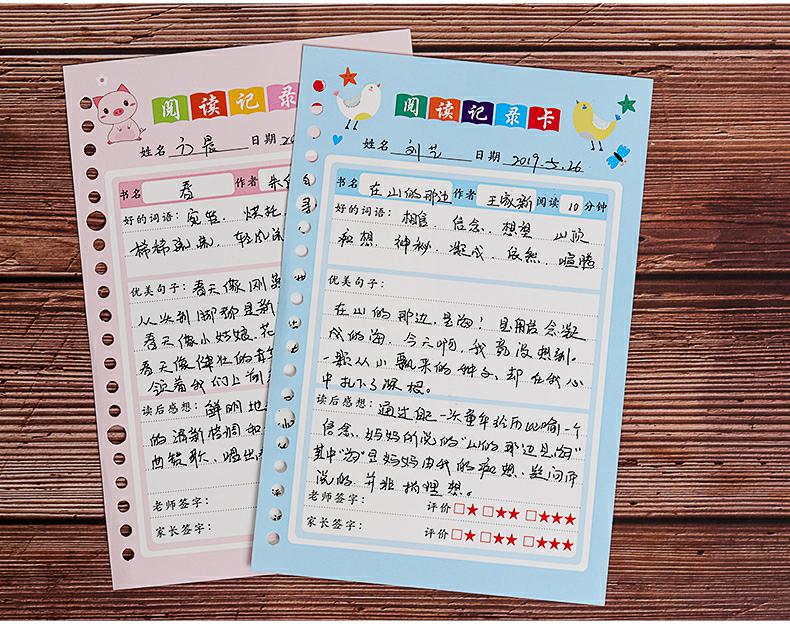 阅读记录
姓名 日期 20
书名 春 作者 朱
好的词语:
优美句子: 春天像刚
从头到脚都是新
春天像小姑娘,花
春天像健壮的青
领着我们上前
读后感想: 鲜明地
的清新格调和
老师签字:
家长签字:
阅读记录卡
姓名 刘艺 日期 2019.5.26
书名 在山的那边 作者 王家新 阅读 10 分钟
好的词语: 相信、信念、想望 山顶
痴想、神秘、凝成、依然、喧腾
优美句子:
在山的那边,是海!是用信念凝
成的海。今天啊,我竟没想到,
一颗从小飘来的种子,却在我心
中扎下了深根。
读后感想: 通过 一次童年经历比喻一个
信念、妈妈所说的"山的那边是海"
其中"海"是妈妈由我的痴想、
说的,并非 理想。
老师签字: 评价 □★ □★★ □★★★
家长签字: 评价 □★ □★★ □★★★